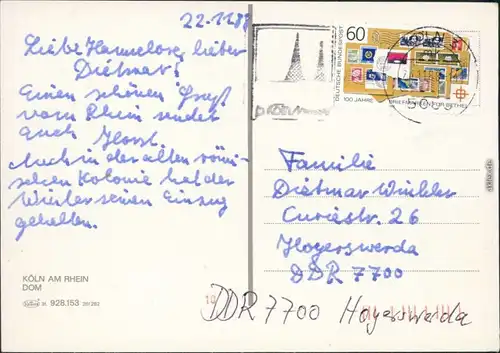 22.11.88
Liebe Hannelore, lieber
Dietmar!
Einen schönen Gruß
vom Rhein sendet
Euch Horst.
Auch in der alten römi-
schen Kolonie hat der
Winter seinen Einzug
gehalten.
KÖLN AM RHEIN
DOM
928.153
60
DEUTSCHE BUNDESPOST
100 JAHRE BRIEFMARKEN FÜR BETHEL
KÖLN
Familie
Dietmar Winkler
Curiestr. 26
Hoyerswerda
DDR 7700
10
DDR 7700 Hoyerswerda